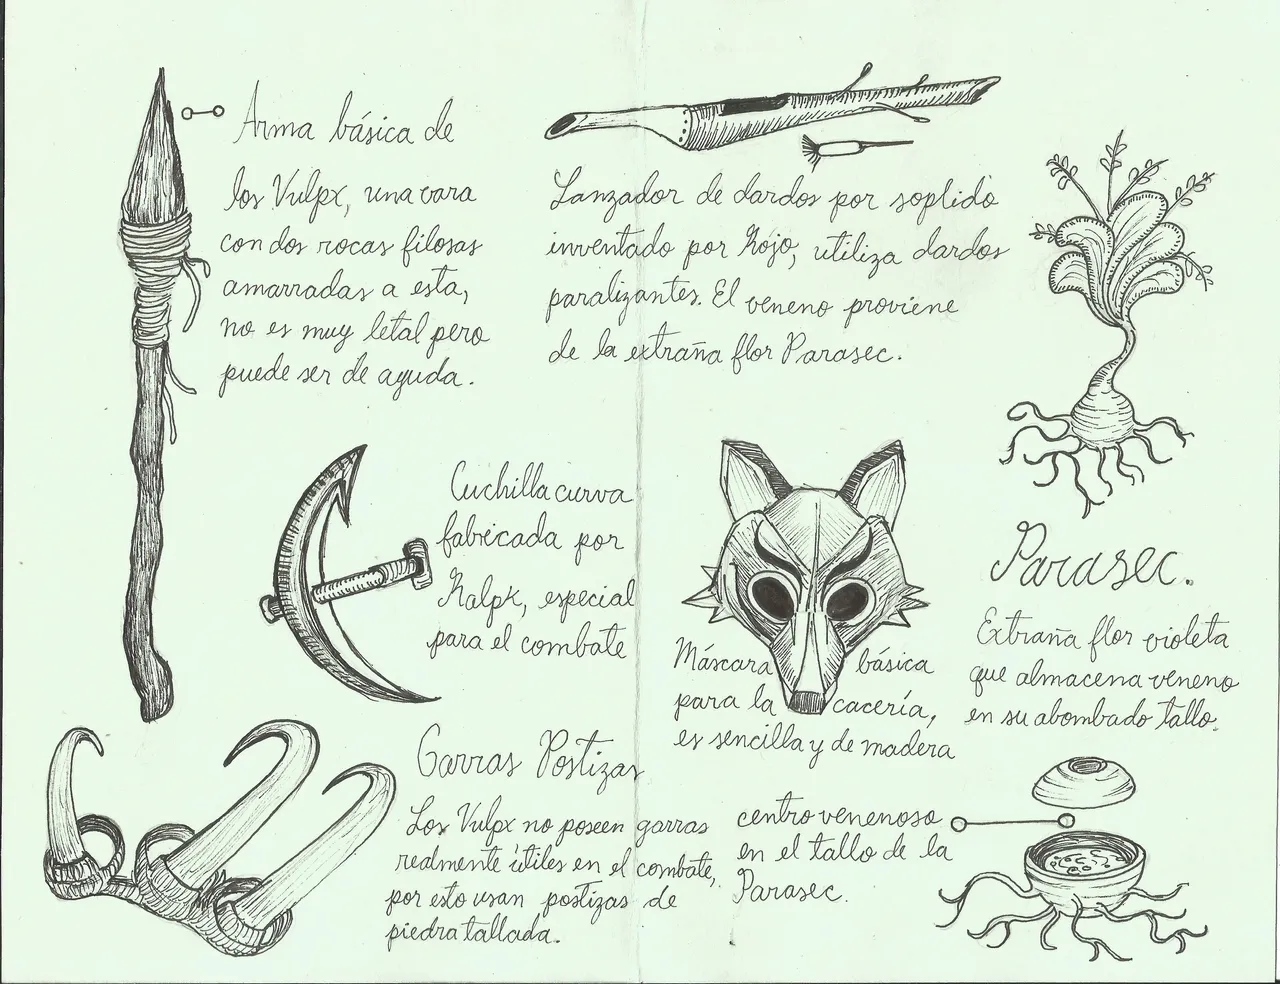 Arma básica de
los Vulpx, una vara
con dos rocas filosas
amarradas a esta,
no es muy letal pero
puede ser de ayuda.
Lanzador de dardos por soplido
inventado por Rojo, utiliza dardos
paralizantes. El veneno proviene
de la extraña flor Parasec.
Cuchilla curva
fabricada por
Kalpx, especial
para el combate
Máscara básica
para la cacería,
es sencilla y de madera
Parasec.
Extraña flor violeta
que almacena veneno
en su abombado tallo.
Garras Postizas
Los Vulpx no poseen garras
realmente útiles en el combate,
por esto usan postizas de
piedra tallada.
centro venenoso
en el tallo de la
Parasec.